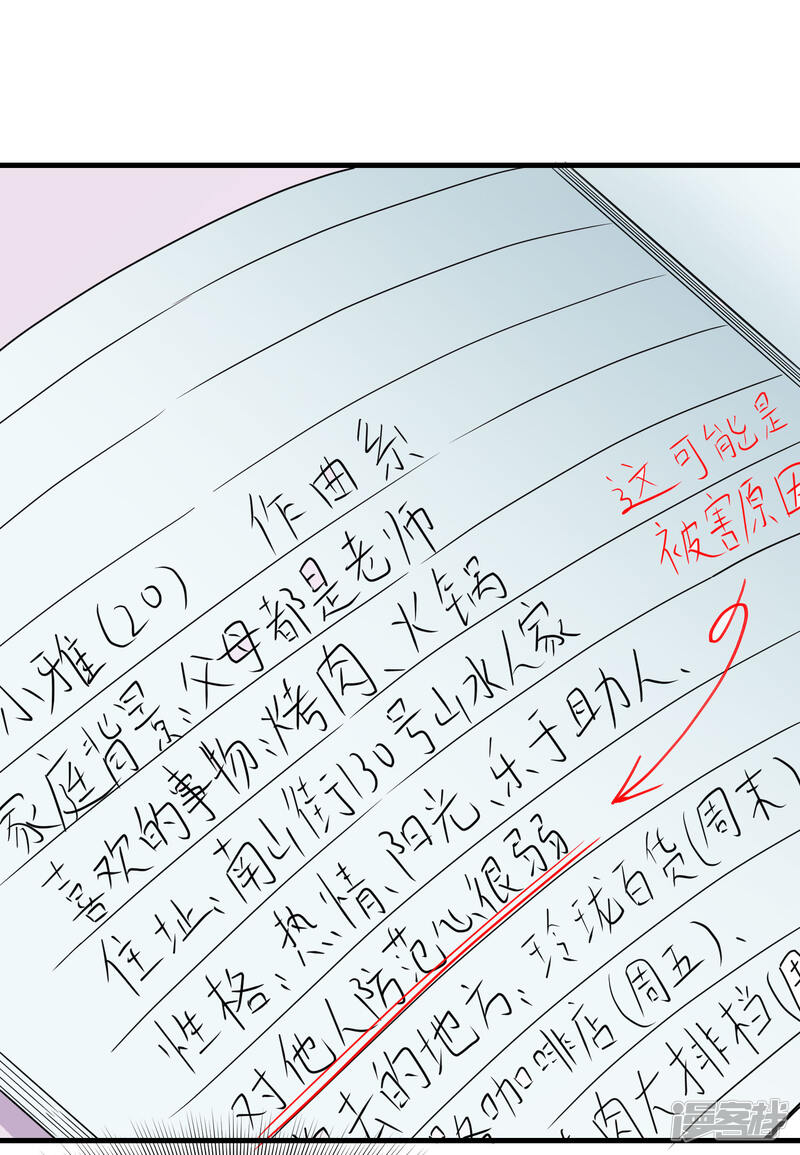 作曲系
小雅(20)
家庭背景、父母都是老师
喜欢的事物、烤肉、火锅
住址、南山街130号山水人家
性格、热情、阳光、乐于助人、
对他人防范心很弱
去的地方、玲珑百货(周末)
咖啡店(周五)、
肉大排档(周
这可能是
被害原因
漫客栈